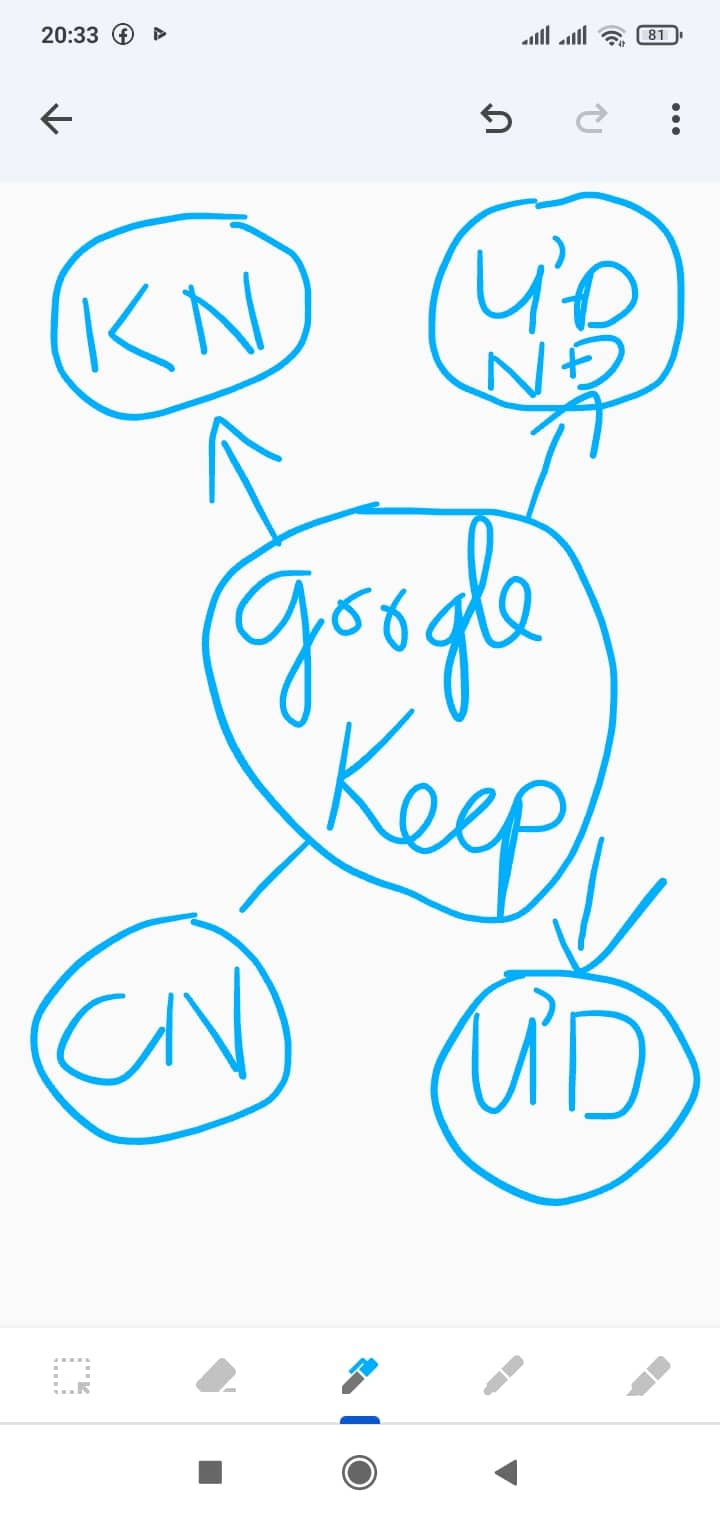 20:33
81
KN
Ư'Đ
NĐ
Google
Keep
CN
Ư'D